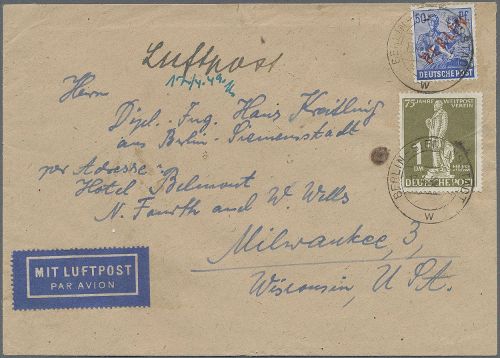 Luftpost
50 PF
BERLIN
DEUTSCHE POST
Herrn
Dipl.-Ing. Hans
aus Berlin-Siemensstadt
per Adresse
Hotel Belmont
N. Fourth and W. Wells
Milwaukee, 3,
Wisconsin, USA.
75 JAHRE WELTPOST
VEREIN
1
DM
DEUTSCHE POST
BERLIN
W
MIT LUFTPOST
PAR AVION